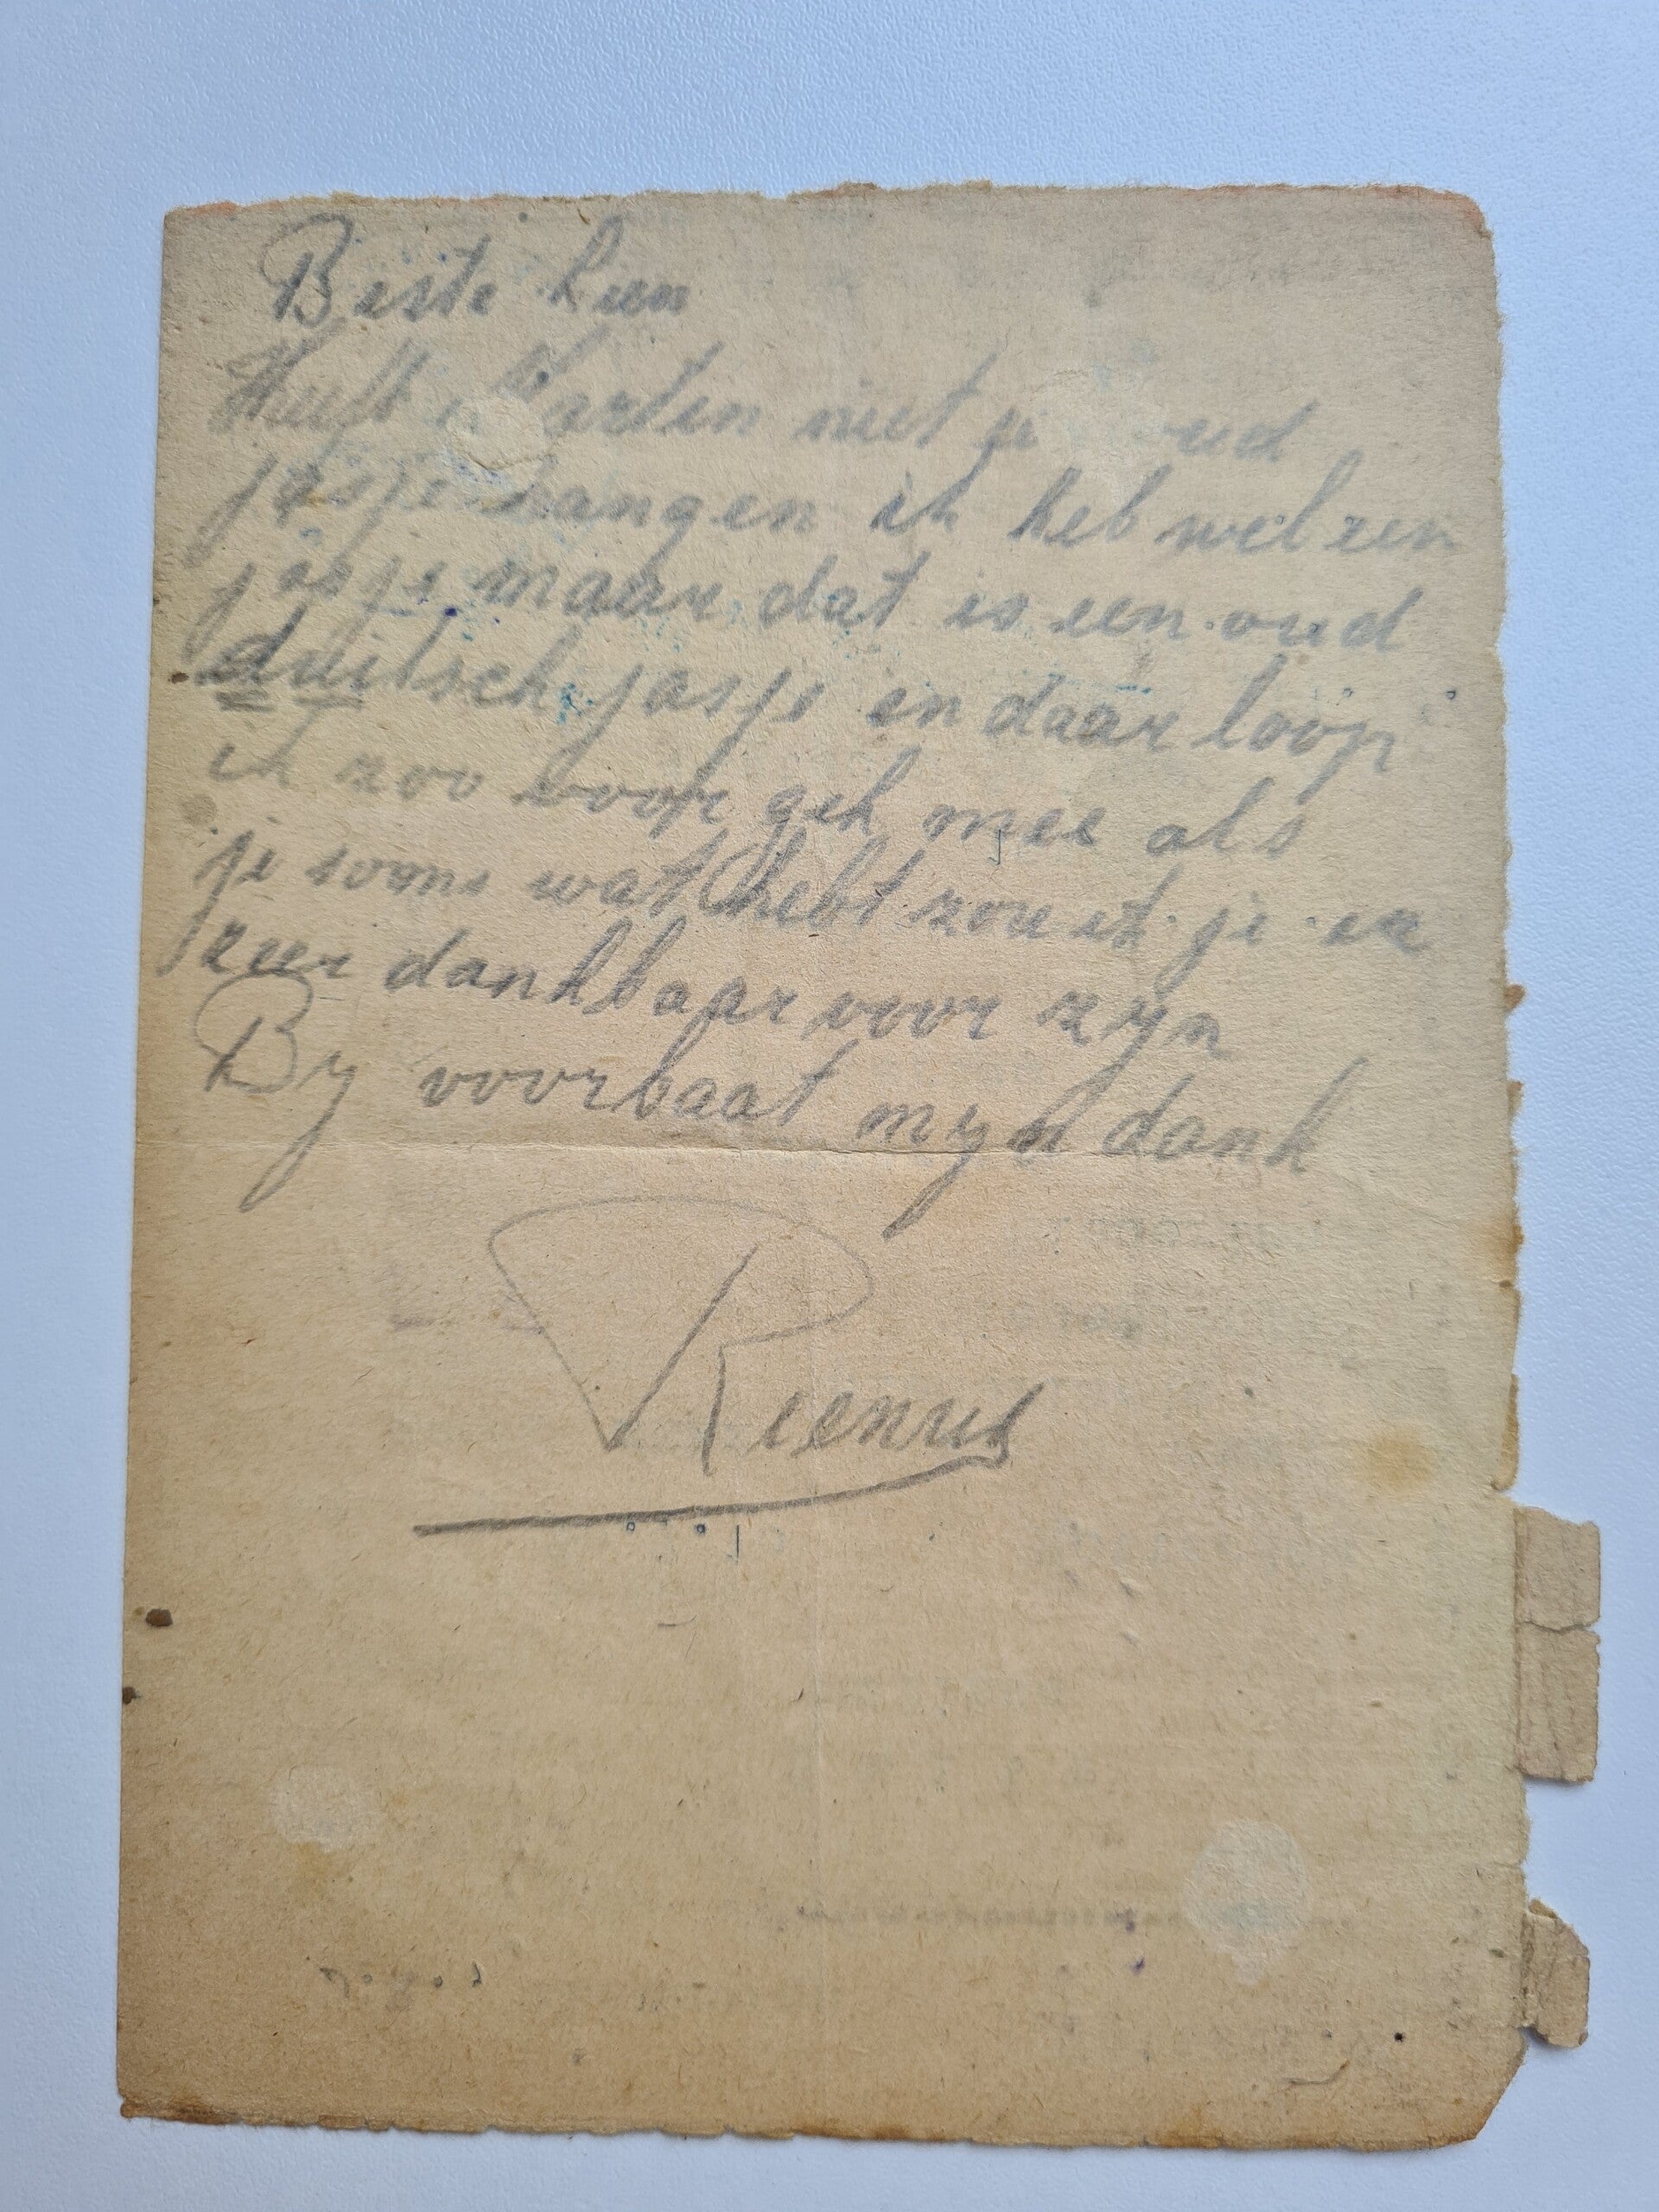 Beste Lien
Heeft Marten niet je oud
jasje hangen ik heb wel een
jasje maar dat is een oud
duitsch jasje en daar loop
ik zoo voor gek mee als
je soms wat hebt zou ik je er
zeer dankbaar voor zyn
By voorbaat myn dank
Rienus